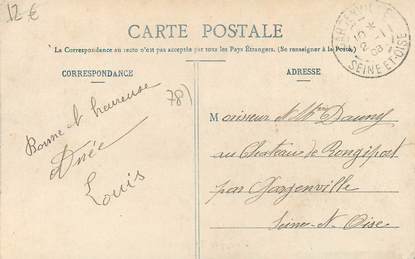 12 €
CARTE POSTALE
La Correspondance au recto n'est pas acceptée par tous les Pays Étrangers. (Se renseigner à la Poste.)
CORRESPONDANCE
ADRESSE
GARGENVILLE
2-1
08
SEINE-ET-OISE
(78)
Bonne et heureuse
Année
Louis
Monsieur et Mme
au Chateau de
par Gargenville
Seine-et-Oise